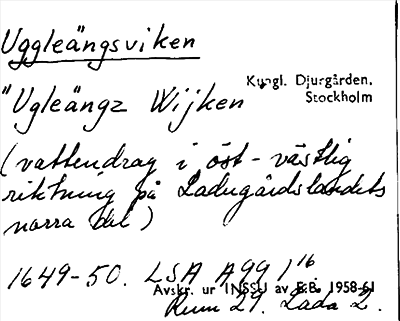 Uggleängsviken
Kungl. Djurgården.
Stockholm
"Ugleängz Wijken
(vattendrag i öst-västlig
riktning på Ladugårdslandets
norra del)
1649-50. LSA A99 1¹⁶
Avskr. ur INSSU av B.B. 1958-61
Rum 29. Låda 2.